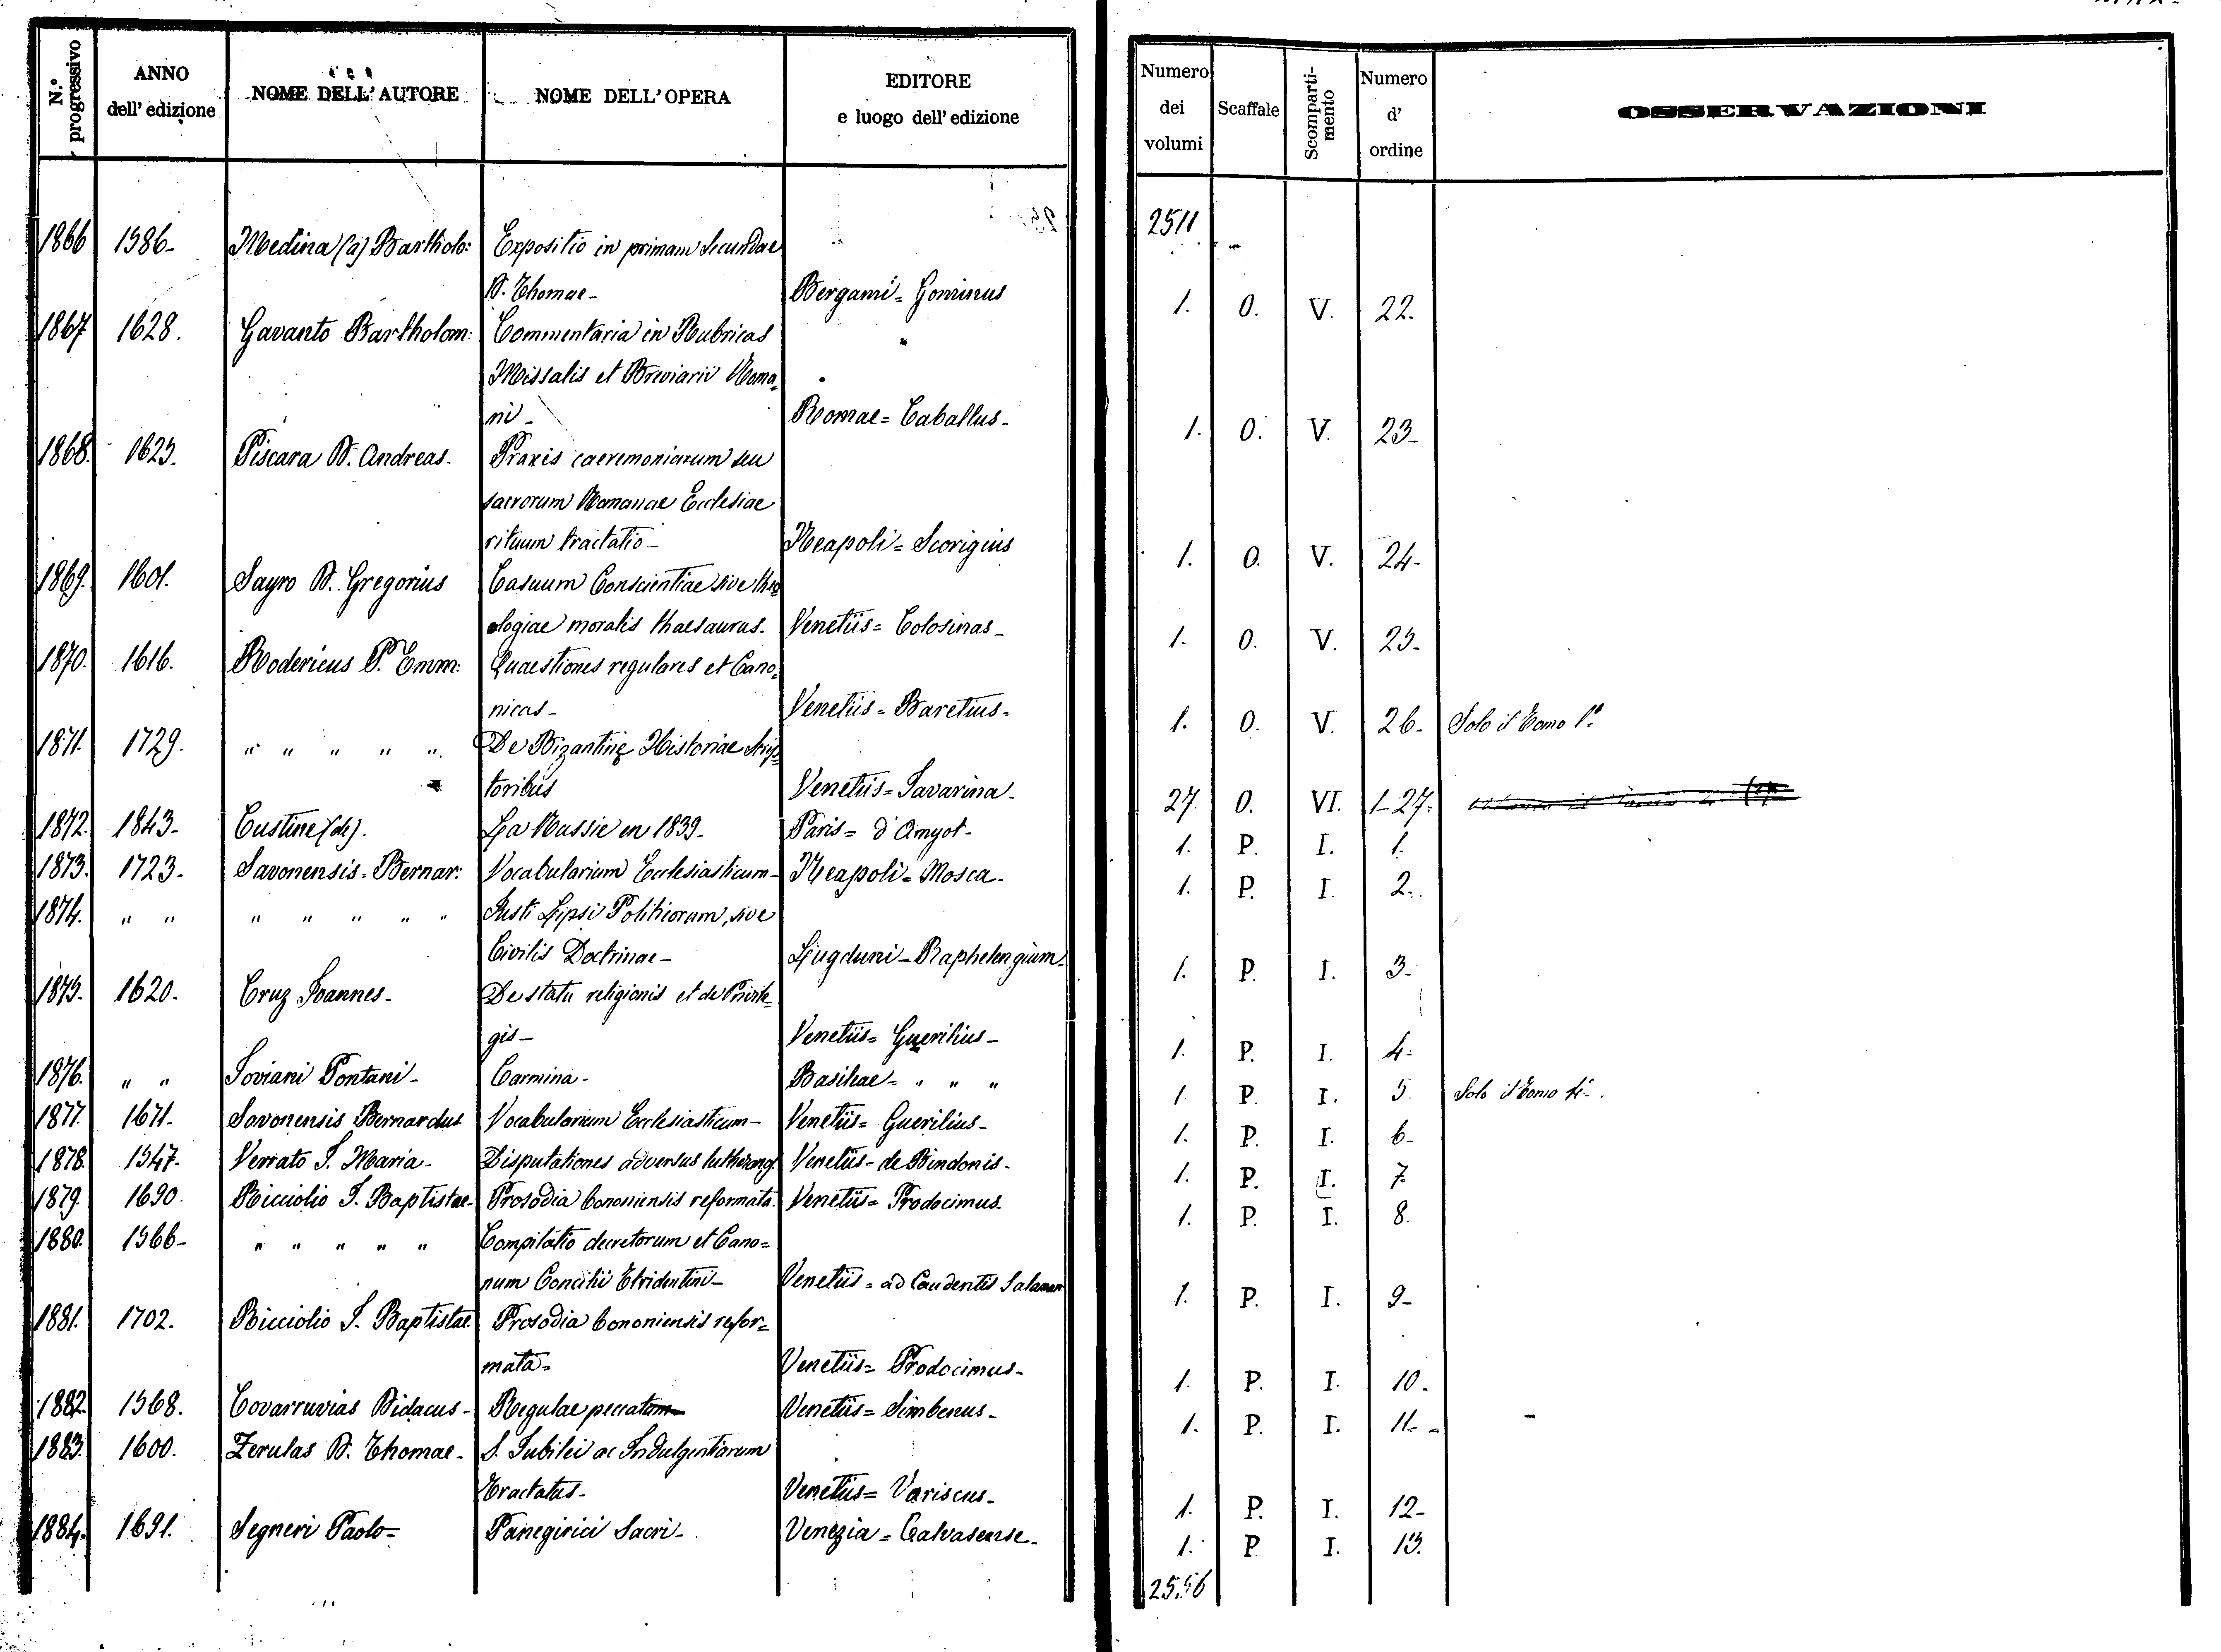 N.° progressivo | ANNO dell' edizione | NOME DELL' AUTORE | NOME DELL' OPERA | EDITORE e luogo dell' edizione | Numero dei volumi | Scaffale | Scompartimento | Numero d' ordine | OSSERVAZIONI
2511
1866 1586- Medina (a) Bartholo: Expositio in primam Secundae
D. Thomae- Bergami= 1. O. V. 22.
1867 1628. Gavanto Bartholom: Commentaria in Rubricas
Missalis et Breviarii Roma=
ni- Romae= Caballus- 1. O. V. 23-
1868. 1625. Piscara D. Andreas- Praxis caeremoniarum seu
sacrorum Romanae Ecclesiae
rituum tractatio- Neapoli= Scorigius 1. O. V. 24-
1869. 1601. Sayro D. Gregorius Casuum Conscientiae sive theo
ologiae moralis thaesaurus- Venetiis= Colosinas- 1. O. V. 25-
1870. 1616. Rodericus P. Emm: Quaestiones regulares et Cano=
nicas- Venetiis= Baretius- 1. O. V. 26- Solo il Tomo 1.°
1871. 1729. " " " " " De Bizantinę Historiae Scrip=
toribus Venetiis= Javarina- 27. O. VI. 1-27.
1872. 1843- Custine (de). La Russie en 1839- Paris= d'Amyot- 1. P. I. 1.
1873. 1723- Savonensis- Bernar: Vocabularium Ecclesiasticum- Neapoli= Mosca- 1. P. I. 2.
1874. " " " " " " " Justi Lipsi Politicorum, sive
Civilis Doctrinae- Lugduni- Raphelengium- 1. P. I. 3-
1875. 1620. Cruz Joannes- De statu religionis et de Privile=
gis- Venetiis= Guerilius- 1. P. I. 4-
1876. " " Joviani Pontani- Carmina- Basileae= " " " 1. P. I. 5. Solo il Tomo 4°-
1877. 1671. Savonensis Bernardus Vocabularium Ecclesiasticum- Venetiis= Guerilius- 1. P. I. 6-
1878. 1547. Verrato J. Maria- Disputationes adversus lutheranos Venetiis- de Bindonis- 1. P. I. 7-
1879. 1690. Ricciolio J. Baptistae- Prosodia bononiensis reformata. Venetiis= Prodocimus. 1. P. I. 8.
1880. 1566- " " " " " Compilatio decretorum et Cano=
num Concilii Tridentini- Venetiis= ad Candentis Salaman 1. P. I. 9-
1881. 1702. Ricciolio J. Baptistae Prosodia bononiensis refor=
mata= Venetiis= Prodocimus- 1. P. I. 10.
1882. 1568. Covarruvias Didacus- Regulae peccatum Venetiis= Simbenus- 1. P. I. 11-
1883. 1600. Zerulas D. Thomae- S. Jubilei ac Indulgentiarum
Tractatus- Venetiis= Variscus- 1. P. I. 12-
1884. 1691. Segneri Paolo= Panegirici Sacri- Venezia= 1. P I. 13.
2556